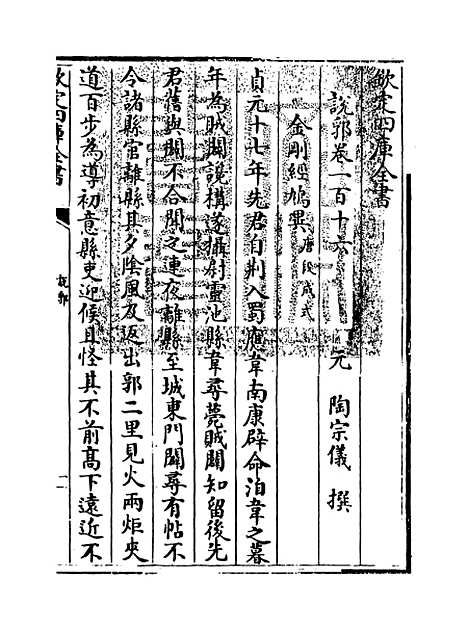 欽定四庫全書
説郛卷一百十六
元 陶宗儀 撰
金剛經鳩異 唐段成式
貞元十七年先君自荆入蜀應韋南康辟命洎韋之暮
年為賊闢讒構遂攝尉靈池縣韋尋薨賊闢知留後先
君舊與闢不合聞之連夜離縣至城東門闢尋有帖不
令諸縣官離縣其夕陰風及返出郭二里見火兩炬夾
道百步為導初意縣吏迎候且怪其不前髙下遠近不
欽定四庫全書
説郛